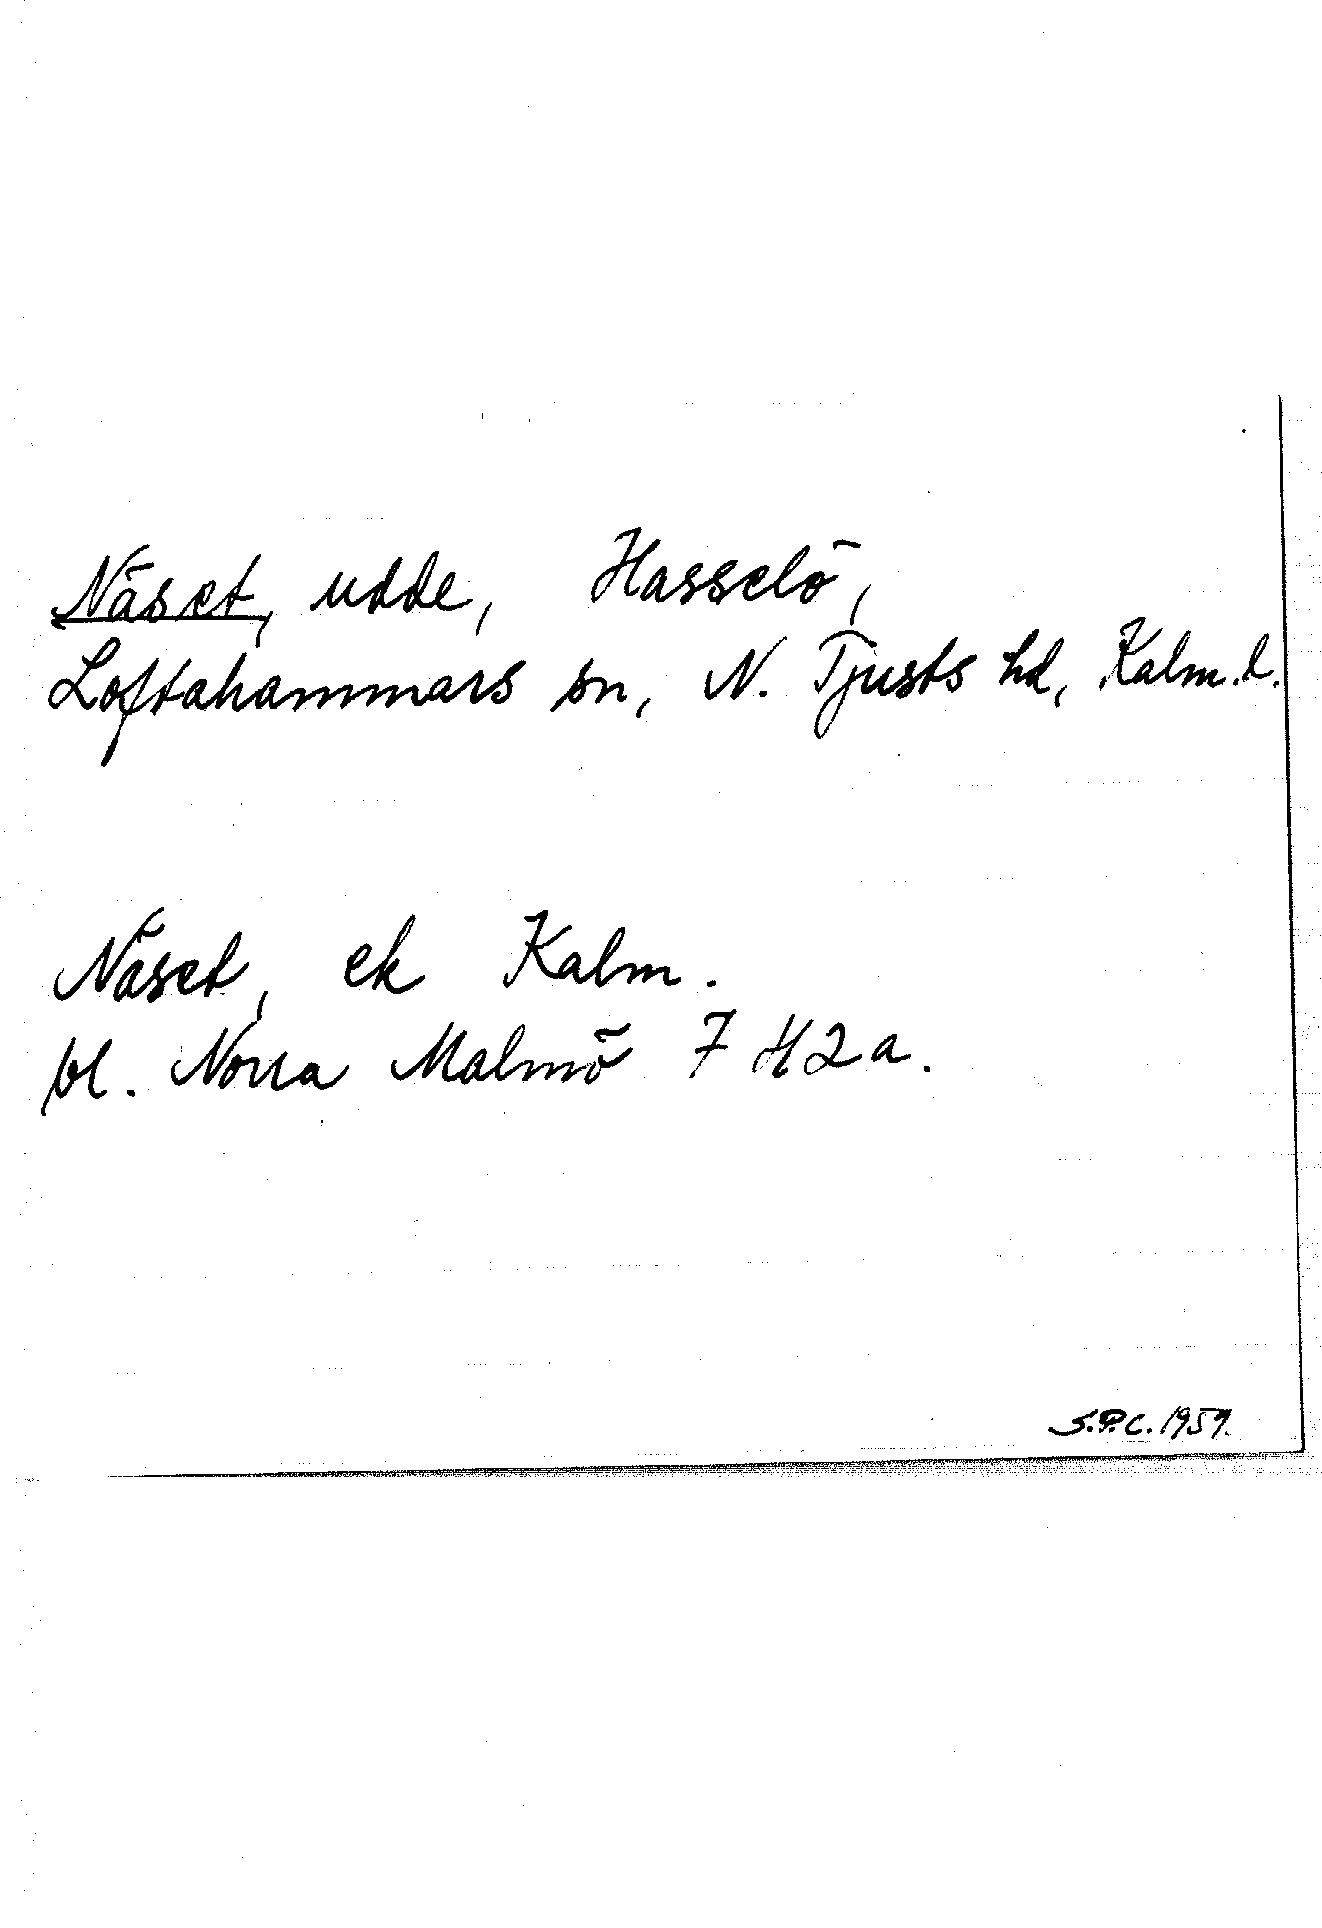 Näset, udde, Hasselö,
Loftahammars sn, N. Tjusts hd, Kalm. l.
Näset, ek Kalm.
bl. Norra Malmö 7 H 2 a.
S.P.C. 1957.